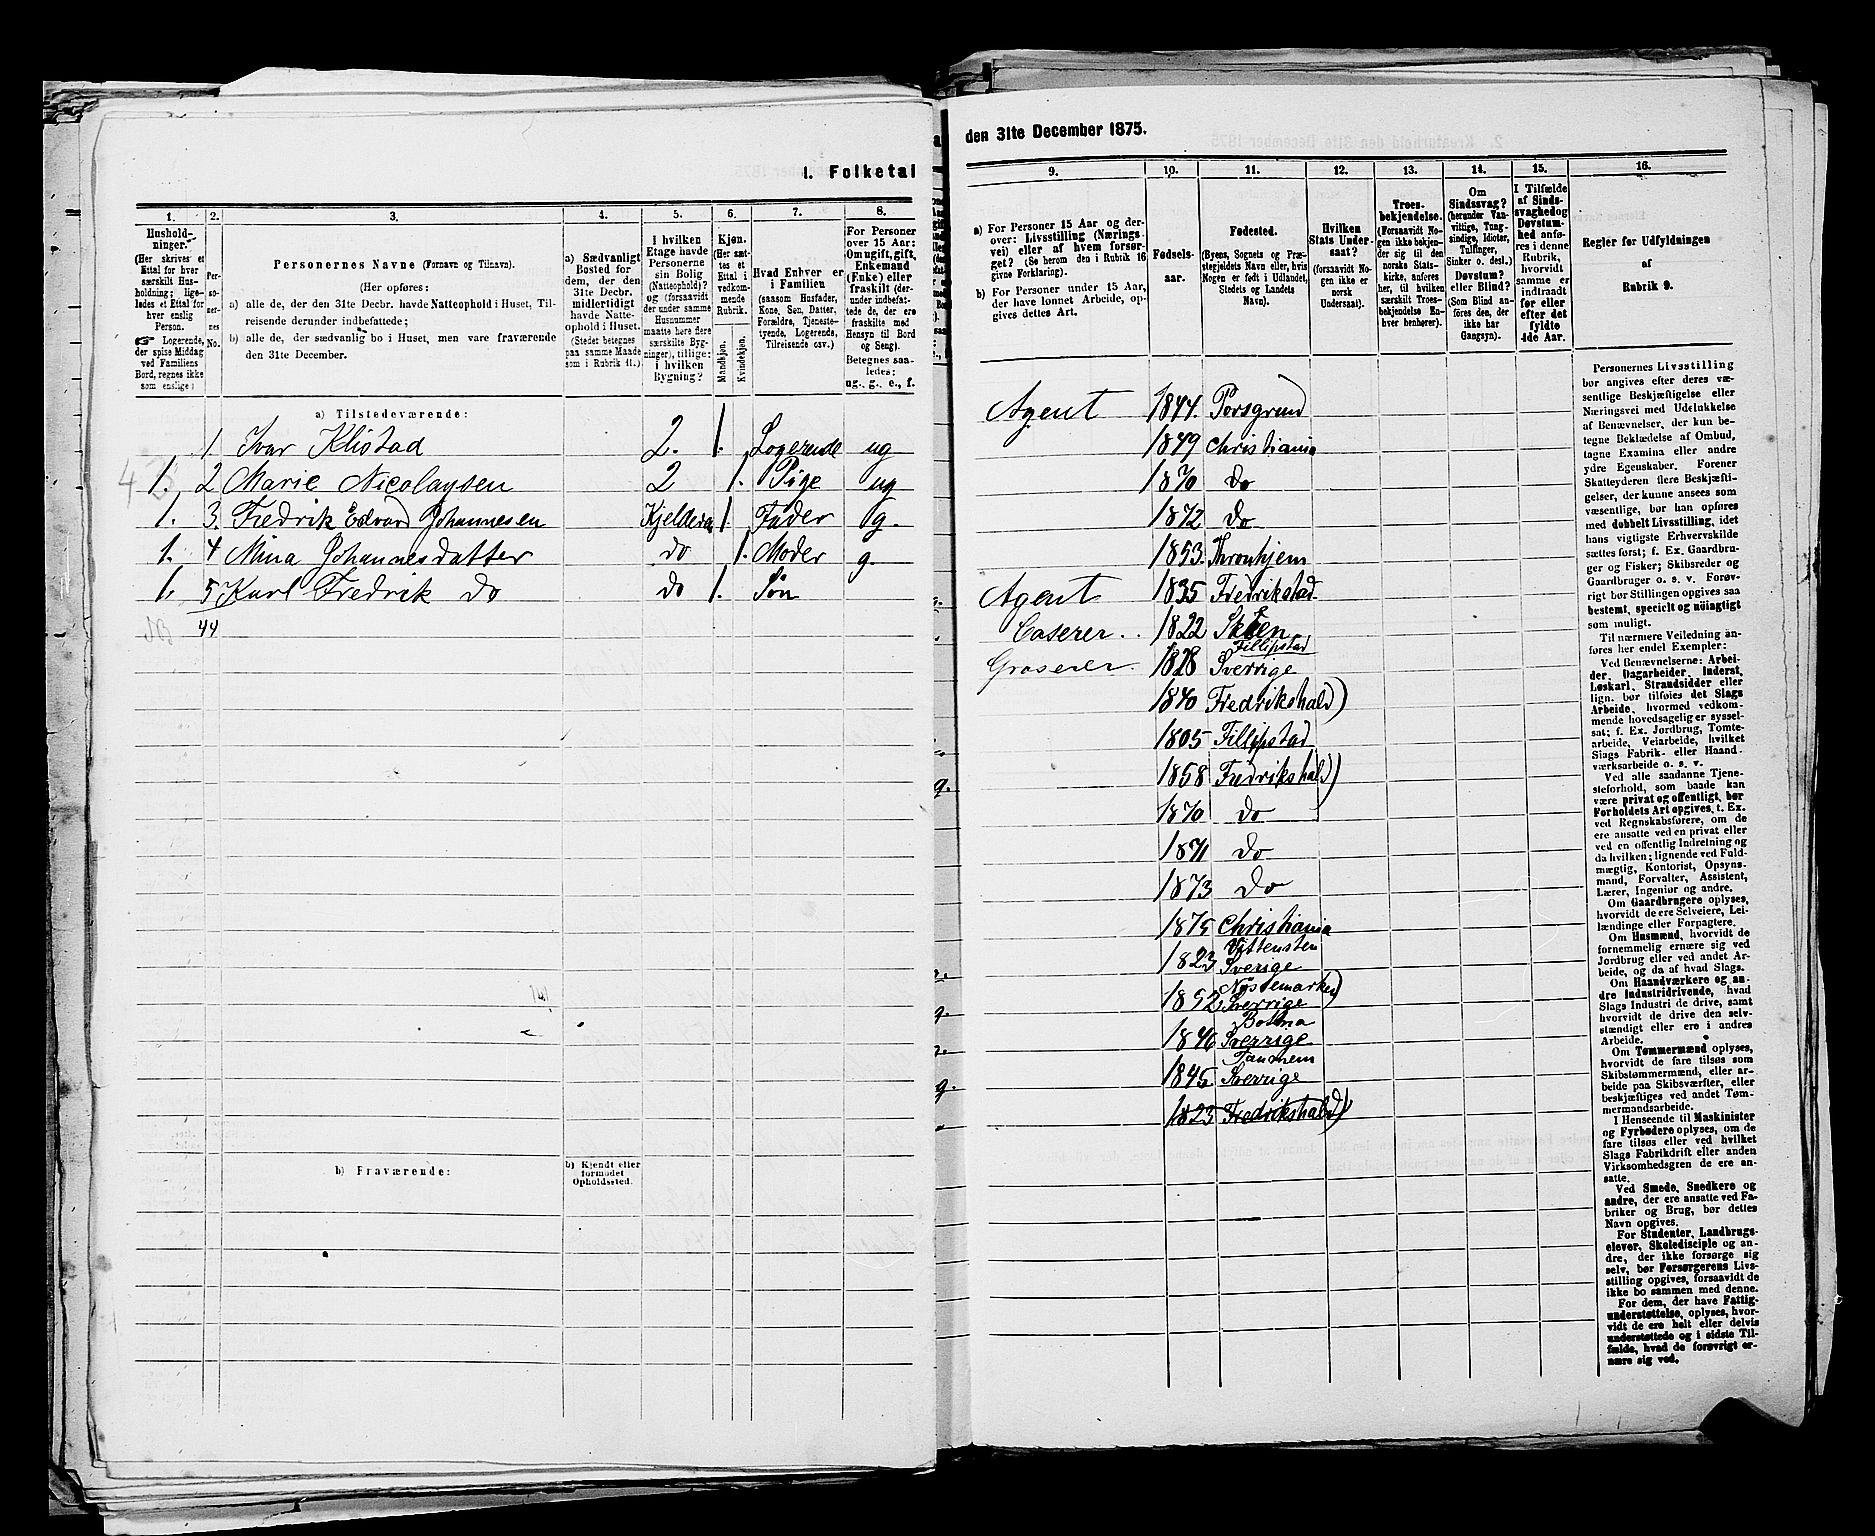 I. Folketal
1. 2. 3. 4. 5. 6. 7. 8.
Hushold-
ninger.
(Her skrives et
Ettal for hver
særskilt Hus-
holdning; lige-
ledes et Ettal for
hver enslig
Person.
Logerende,
der spise Middag
ved Familiens
Bord, regnes ikke
som enslige.)
Per-
so-
ner-
nes
No.
Personernes Navne (Fornavn og Tilnavn).
(Her opføres:
a) alle de, der den 31te Decbr. havde Natteophold i Huset, Til-
reisende derunder indbefattede;
b) alle de, der sædvanlig bo i Huset, men vare fraværende
den 31te December.
a) Sædvanligt
Bosted for
dem, der den
31te Decbr.
midlertidigt
havde Natte-
ophold i Huset.
(Stedet betegnes
paa samme Maade
som i Rubrik 11.)
I hvilken
Etage havde
Personerne
sin Bolig
(Natteophold)?
og (forsaavidt
der under samme
Husnummer
maatte høre flere
særskilte Byg-
ninger), tillige:
i hvilken
Bygning?
Kjøn.
(Her sæt-
tes et
Ettal i
vedkom-
mende
Rubrik.
Mandkjøn.
Kvindekjøn.
Hvad Enhver er
i Familien
(saasom Husfader,
Kone, Søn, Datter,
Forældre, Tjeneste-
tyende, Logerende,
Tilreisende osv.)
For Personer
over 15 Aar:
Om ugift, gift,
Enkemand
(Enke) eller
fraskilt (der-
under indbefat-
tede de, der ere
fraskilte med
Hensyn til Bord
og Seng).
Betegnes saa-
ledes:
ug., g., e., f.
a) Tilstedeværende:
1. Ivar Klistad 2. 1. Logerende ug
1. 2 Marie Nicolaysen 2 1. Pige ug
1. 3. Fredrik Edvard Johannesen Kjelderen 1. Fader g.
1. 4 Mina Johannesdatter do 1. Moder g.
1. 5 Karl Fredrik do do 1. Søn
44
b) Fraværende:
b) Kjendt eller
formodet
Opholdssted.
den 31te December 1875.
9. 10. 11. 12. 13. 14. 15. 16.
a) For Personer 15 Aar og der-
over: Livsstilling (Nærings-
vei) eller af hvem forsør-
get? (Se herom den i Rubrik 16
givne Forklaring).
b) For Personer under 15 Aar,
der have lønnet Arbeide, op-
gives dettes Art.
Fødsels-
aar.
Fødested.
(Byens, Sognets og Præ-
stegjeldets Navn eller, hvis
Nogen er født i Udlandet,
Stedets og Landets
Navn).
Hvilken
Stats Under-
saat?
(forsaavidt No-
gen ikke er
norsk
Undersaat).
Troes-
bekjendelse.
(Forsaavidt No-
gen ikke bekjen-
der sig til den
norske Stats-
kirke, anføres
her, til hvilken
særskilt Troes-
bekjendelse En-
hver henhører).
Om
Sindssvag?
(herunder Van-
vittige, Tung-
sindige, Idioter,
Tullinger,
Sinker o. desl.)
Døvstum?
eller Blind?
(Som Blind an-
føres den, der
ikke har
Gangsyn).
I Tilfælde
af Sinds-
svaghed og
Døvstum-
hed anfø-
res i denne
Rubrik,
hvorvidt
samme er
indtraadt
før eller
efter det
fyldte
4de Aar.
Regler for Udfyldningen
af
Rubrik 9.
Agent 1844. Porsgrund
1849 Christiania
1870 do
1872 do
1853. Thronhjem
Agent 1835 Fredrikstad
1822 Skien
Groserer 1828 Fillipstad Sverrige
1840 Fredrikshald
1805 Fillipstad
1858 Fredrikshald
1870 do
1871 do
1873 do
1875 Christiania
1823 Sverige
1852 Sverrige
1846 Sverrige
1845 Sverrige
1823 Fredrikshald
Personernes Livsstilling
bør angives efter deres væ-
sentlige Beskjæftigelse eller
Næringsvei med Udelukkelse
af Benævnelser, der kun be-
tegne Beklædelse af Ombud,
tagne Examina eller andre
ydre Egenskaber. Forener
Skatteyderen flere Beskjæfti-
gelser, der kunne ansees som
væsentlige, bør han opføres
med dobbelt Livsstilling, idet
hans vigtigste Erhvervskilde
sættes først; f. Ex. Gaardbru-
ger og Fisker; Skibsreder og
Gaardbruger o. s. v. Forøv-
rigt bør Stillingen opgives saa
bestemt, specielt og nøiagtigt
som muligt.
Til nærmere Veiledning an-
føres her endel Exempler:
Ved Benævnelserne: Arbei-
der, Dagarbeider, Inderst,
Løskarl, Strandsidder eller
lign. bør tilføies det Slags
Arbeide, hvormed vedkom-
mende hovedsagelig er syssel-
sat; f. Ex. Jordbrug, Tomte-
arbeide, Veiarbeide, hvilket
Slags Fabrik- eller Haand-
værksarbeide o. s. v.
Ved alle saadanne Tjene-
steforhold, som baade kan
være privat og offentligt, bør
Forholdets Art opgives, t. Ex.
ved Regnskabsførere, om de
ere ansatte ved en privat eller
ved en offentlig Indretning og
da hvilken; lignende ved Fuld-
mægtig, Kontorist, Opsyns-
mand, Forvalter, Assistent,
Lærer, Ingeniør og andre.
Om Gaardbrugere oplyses,
hvorvidt de ere Selveiere, Lei-
lændinge eller Forpagtere.
Om Husmænd, hvorvidt de
fornemmelig ernære sig ved
Jordbrug eller ved andet Ar-
beide, og da af hvad Slags.
Om Haandværkere og an-
dre Industridrivende, hvad
Slags Industri de drive, samt
hvorvidt de drive den selv-
stændigt eller ere i andres
Arbeide.
Om Tømmermænd oplyses,
hvorvidt de fare tilsøs som
Skibstømmermænd, eller ar-
beide paa Skibsværfter, eller
beskjæftiges ved andet Tøm-
mermandsarbeide.
I Henseende til Maskinister
og Fyrbødere oplyses, om de
fare tilsøs eller ved hvilket
Slags Fabrikdrift eller anden
Virksomhedsgren de ere an-
satte.
Ved Smede, Snedkere og
andre, der ere ansatte ved Fa-
briker og Brug, bør dettes
Navn opgives.
For Studenter, Landbrugs-
elever, Skoledisciple og an-
dre, der ikke forsørge sig
selv, bør Forsørgerens Livs-
stilling opgives, forsaavidt de
ikke bo sammen med denne.
For dem, der have Fattig-
understøttelse, oplyses, hvor-
vidt de ere helt eller delvis
understøttede og i sidste Til-
fælde, hvad de forøvrigt er-
nære sig ved.